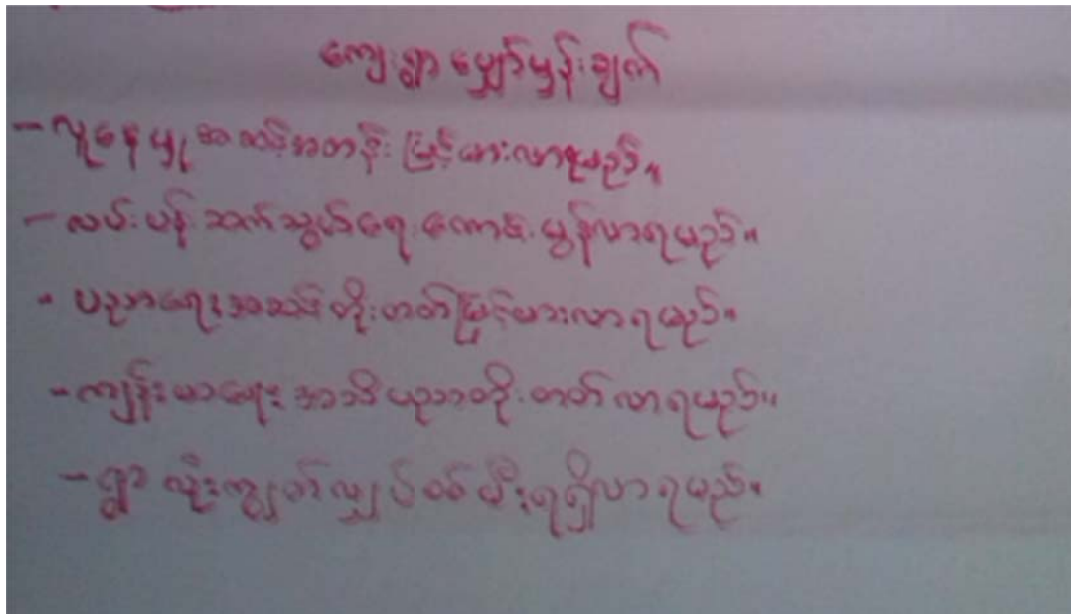 ကျေးရွာမျှော်မှန်းချက်
- လူနေမှုအဆင့်အတန်း မြင့်မားလာရမည်။
- လမ်းပန်းဆက်သွယ်ရေး ကောင်းမွန်လာရမည်။
- ပညာရေးအဆင့် တိုးတက်မြင့်မားလာရမည်။
- ကျန်းမာရေး အသိပညာတိုးတက်လာရမည်။
- ရွာလုံးကျွတ်လျှပ်စစ်မီးရရှိလာရမည်။